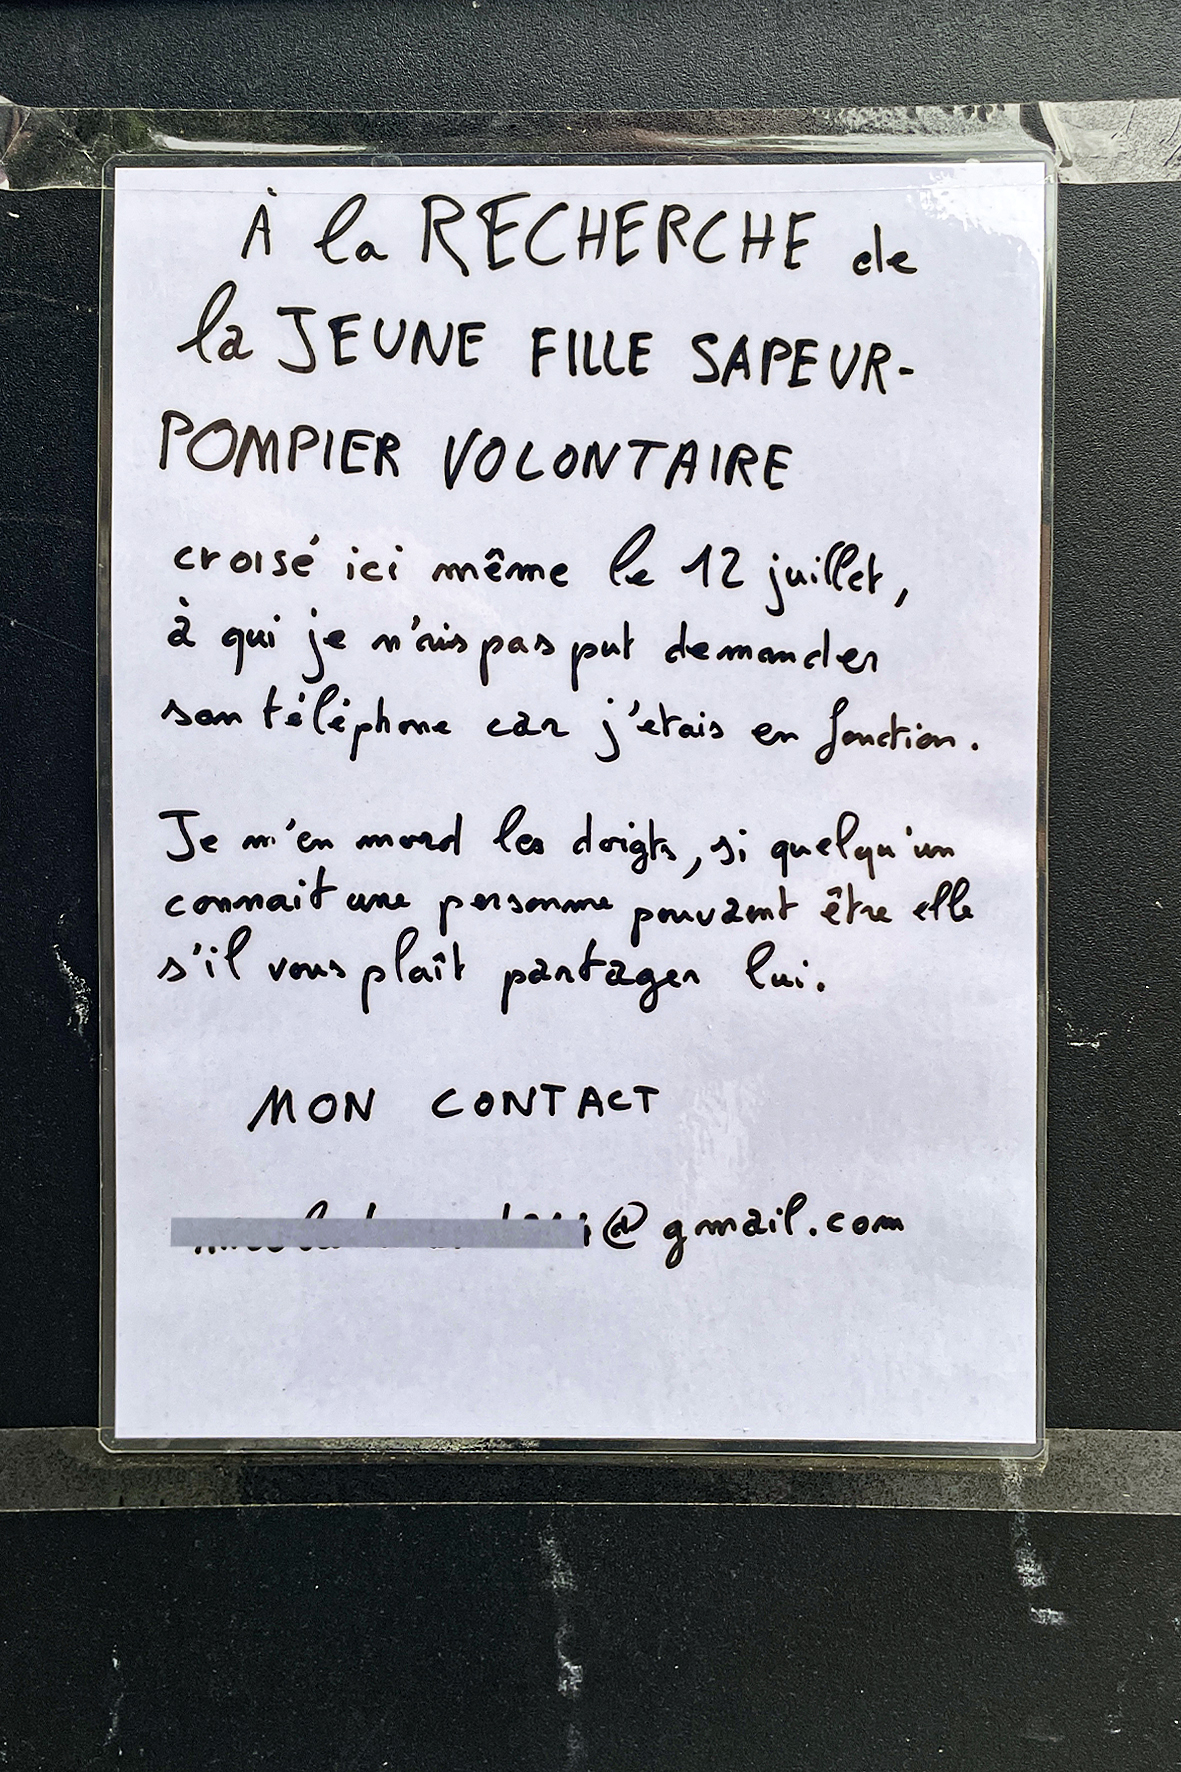 À la RECHERCHE de
la JEUNE FILLE SAPEUR-
POMPIER VOLONTAIRE
croisé ici même le 12 juillet,
à qui je n'ais pas put demander
son téléphone car j'etais en fonction.
Je m'en mord les doigts, si quelqu'un
connait une personne pouvant être elle
s'il vous plaît partager lui.
MON CONTACT
@gmail.com